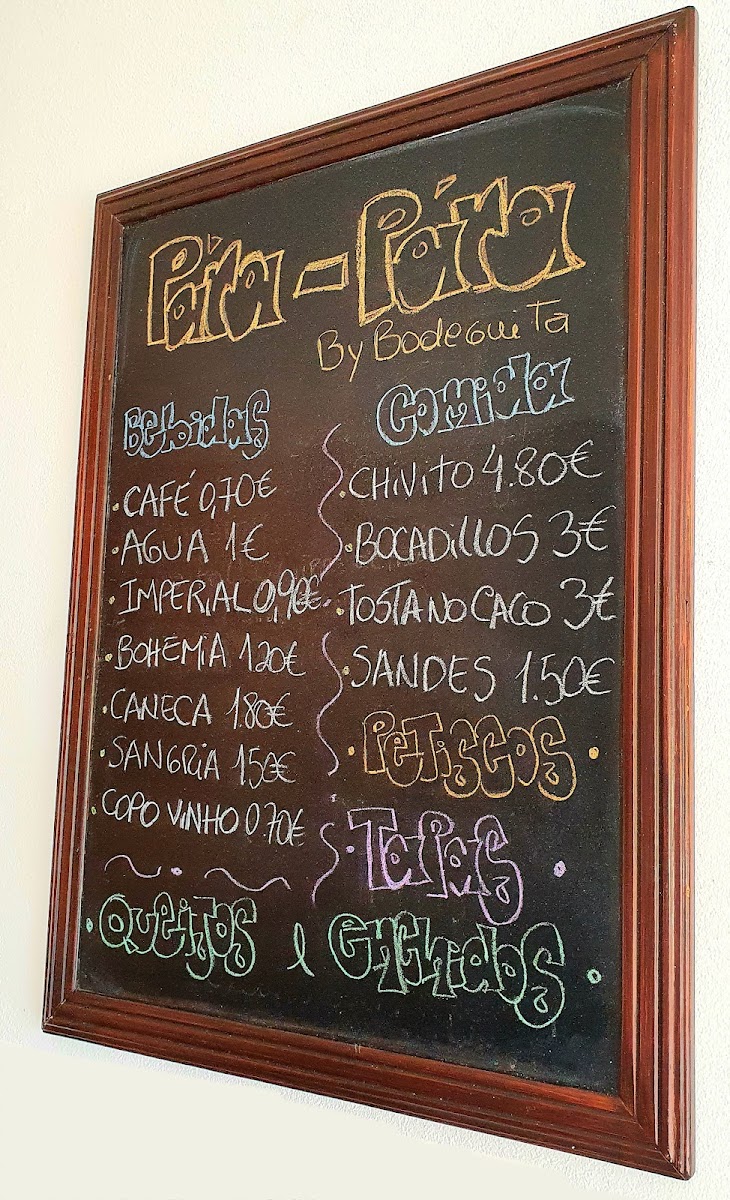 Páta-Páta
By Bodeguita
Bebidas
CAFÉ 0,70€
AGUA 1€
IMPERIAL 0,90€
BOHEMIA 1.20€
CANECA 1.80€
SANGRIA 1.50€
COPO VINHO 0.70€
Comida
CHIVITO 4.80€
BOCADILLOS 3€
TOSTA NO CACO 3€
SANDES 1.50€
PETISCOS
TAPAS
QUEIJOS e ENCHIDOS